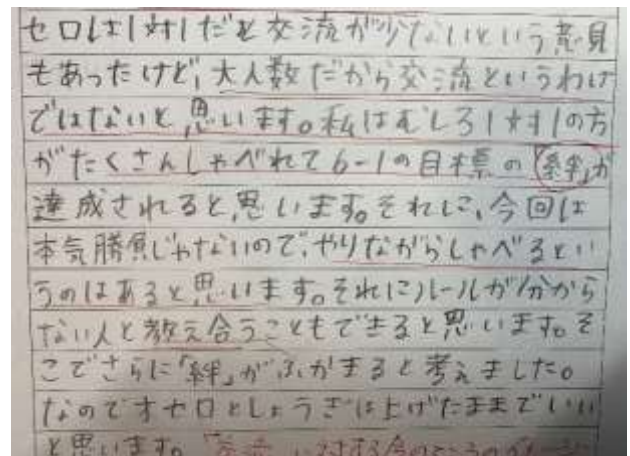 セロは1対1だと交流が少ないという意見
もあったけど、大人数だから交流というわけ
ではないと思います。私はむしろ1対1の方
がたくさんしゃべれて6-1の目標の「絆」が
達成されると思います。それに、今回は
本気勝負じゃないので、やりながらしゃべるとい
うのはあると思います。それにルールが分から
ない人と教え合うこともできると思います。そ
こでさらに「絆」がふかまると考えました。
なのでオセロとしょうぎは上げたままでいい
と思います。